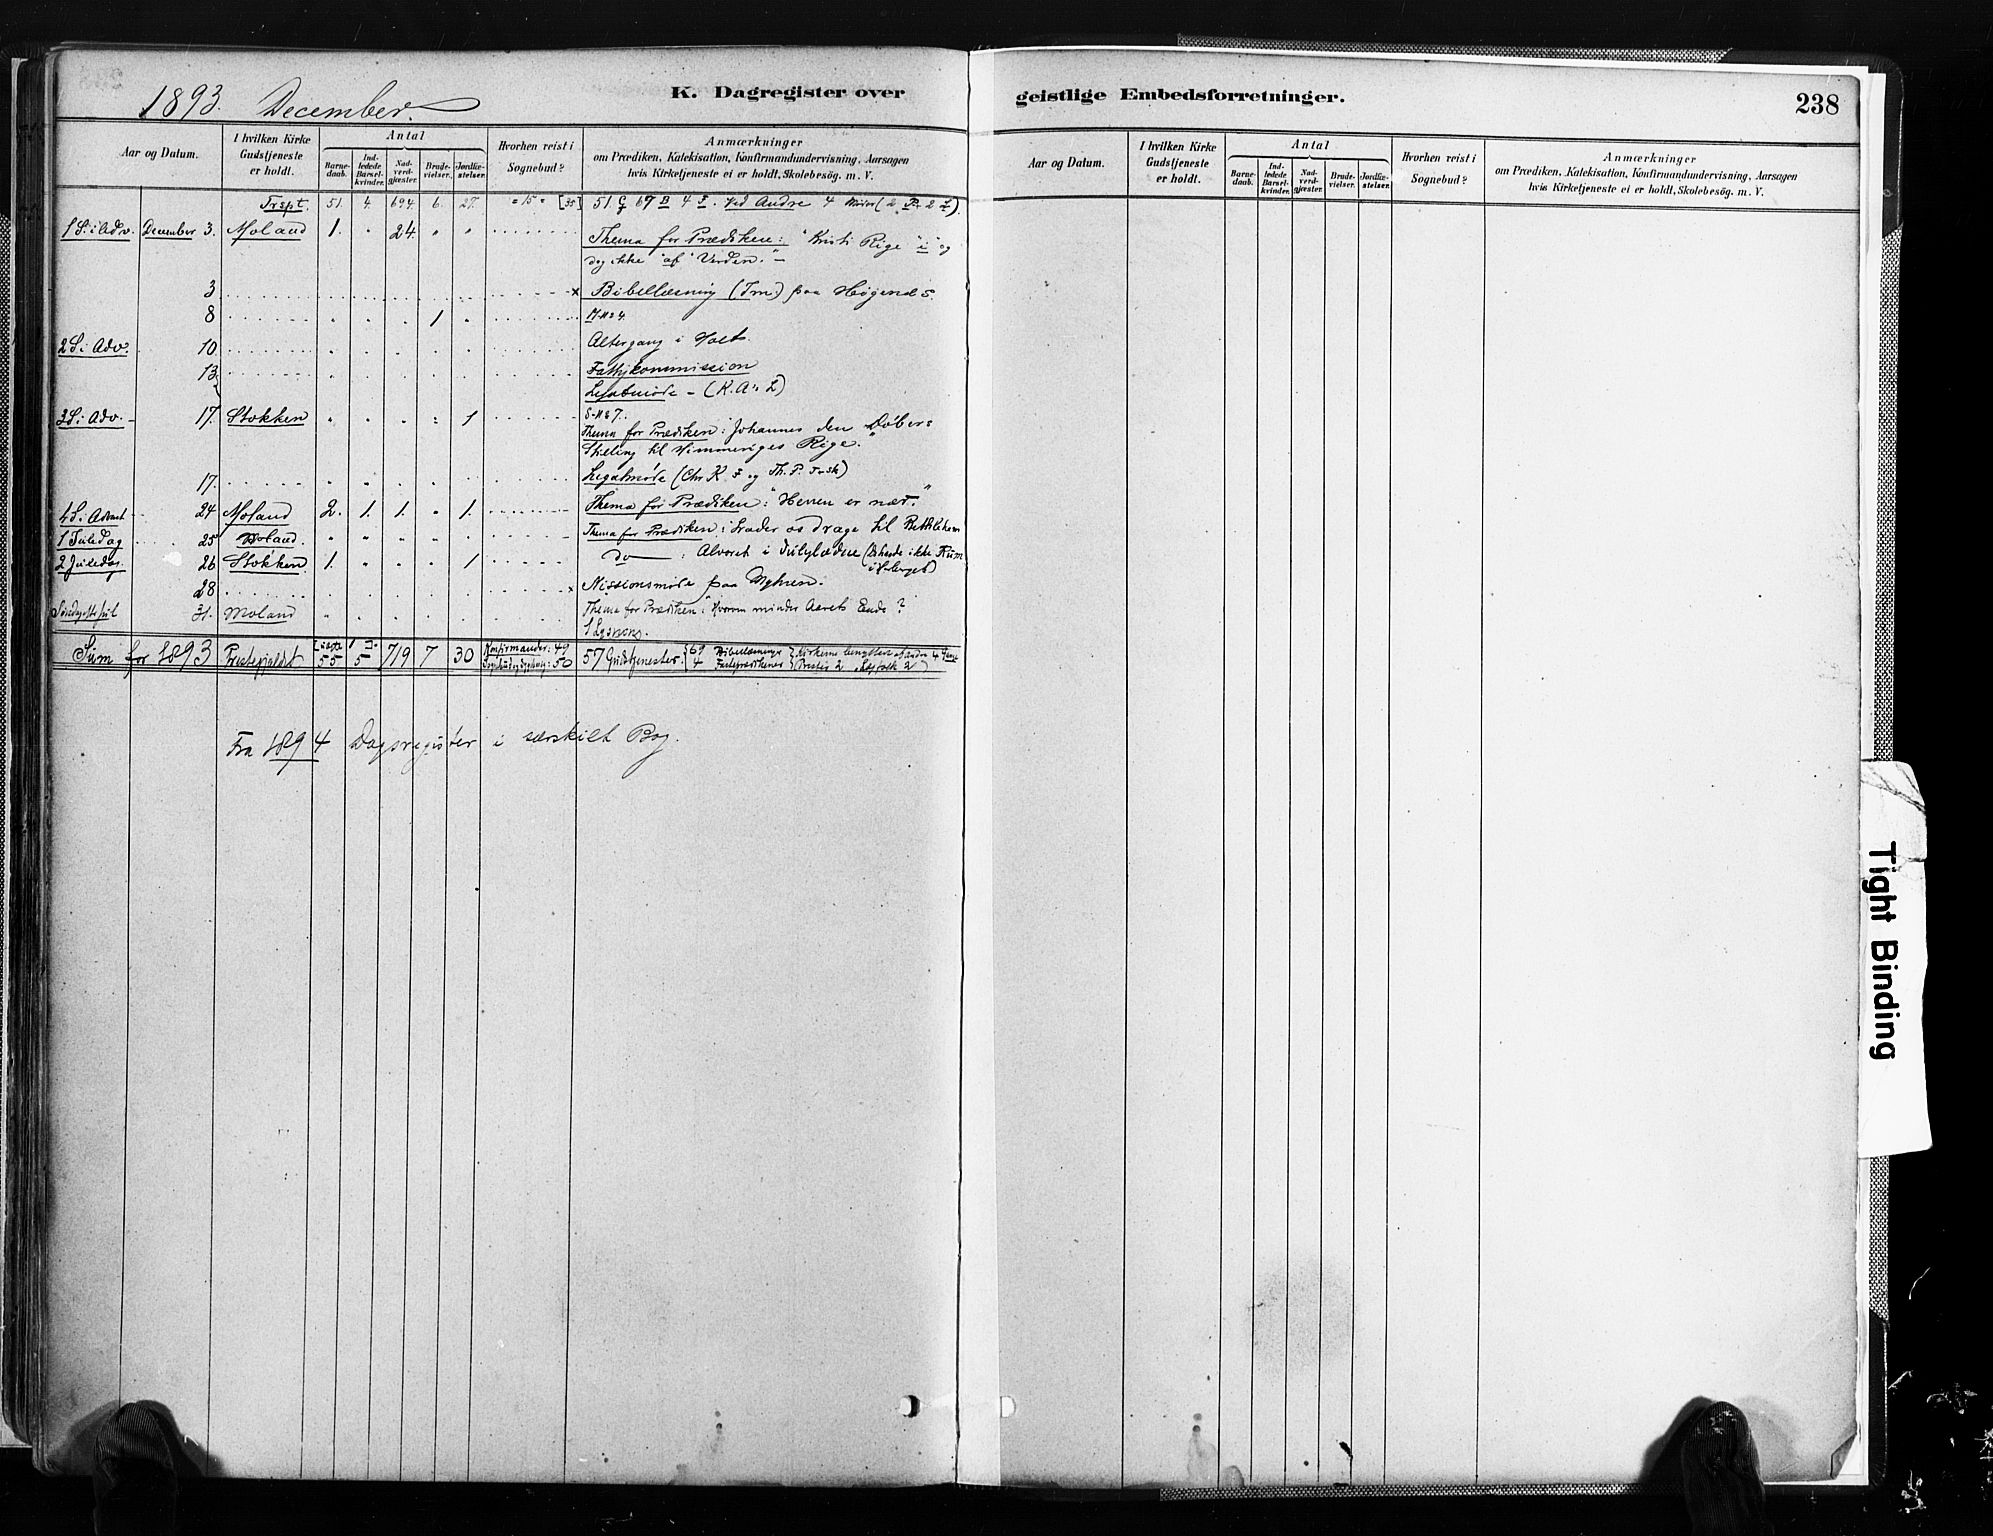 1893. December.
K. Dagregister over
geistlige Embedsforretninger.
238
Aar og Datum.
I hvilken Kirke Gudstjeneste er holdt.
Antal
Barnedaab.
Indledede Barselkvinder.
Nadverdgjæster.
Brudevielser.
Jordfæstelser.
Hvorhen reist i Sognebud?
Anmærkninger
om Prædiken, Katekisation, Konfirmandundervisning, Aarsagen
hvis Kirketjeneste ei er holdt, Skolebesög. m. V.
Trspt. 51. 4. 694. 6. 27. "15" [35] 51 G 67 B 4 F. Ved Andre 4 (2 Pr. 2 L).
1 S. i Adv. December 3. Moland 1. " 24. " " Thema for Prædiken: "Kristi Rige "i" og
dog ikke "af" Verden."
3 x Bibellæsning (Tm.) paa
8 1
2 S. i Adv. 10 Altergang i Holt.
13. Fattigkommission
Legatmøde - (K. A. L)
3 S. i Adv. - 17. Stokken " " " " 1
Thema for Prædiken: Johannes den Døbers
Stilling til Himmeriges Rige."
17. Legatmøde (Chr K. F og Th. P. Tvsk)
4 S. i Advent 24 Moland 2. 1. 1. " 1. Thema for Prædiken: "Herren er nær."
1 Juledag 25 Moland. Thema for Prædiken: Lader os drage til Bethlehem
2 Juledag. 26 Stokken 1. " " " 1 do : Alvoret i Juleglæden (De havde ikke Rum
i Herberget)
28 x Missionsmøde paa Myhren.
Søndag efter Jul 31. Moland Thema for Prædiken: Hvorom minder Aarets Ende?
Sum for 1893 Prestegjeldet 55 5 719 7 30 Konfirmander: 49
50 57 Gudstjenester. {69 Bibellæsninger
4 Fasteprædikener} Kirkerne benyttet af Andre 4 Gange
Prester 2 Lægfolk 2
Fra 1894 Dagsregister i særskilt Bog.
Aar og Datum.
I hvilken Kirke Gudstjeneste er holdt.
Antal
Barnedaab.
Indledede Barselkvinder.
Nadverdgjæster.
Brudevielser.
Jordfæstelser.
Hvorhen reist i Sognebud?
Anmærkninger
om Prædiken, Katekisation, Konfirmandundervisning, Aarsagen
hvis Kirketjeneste ei er holdt, Skolebesög. m. V.
Tight Binding